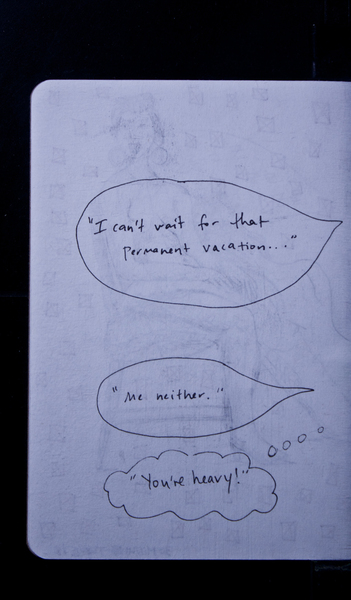 "I can't wait for that
permanent vacation..."
"Me neither."
"You're heavy!"